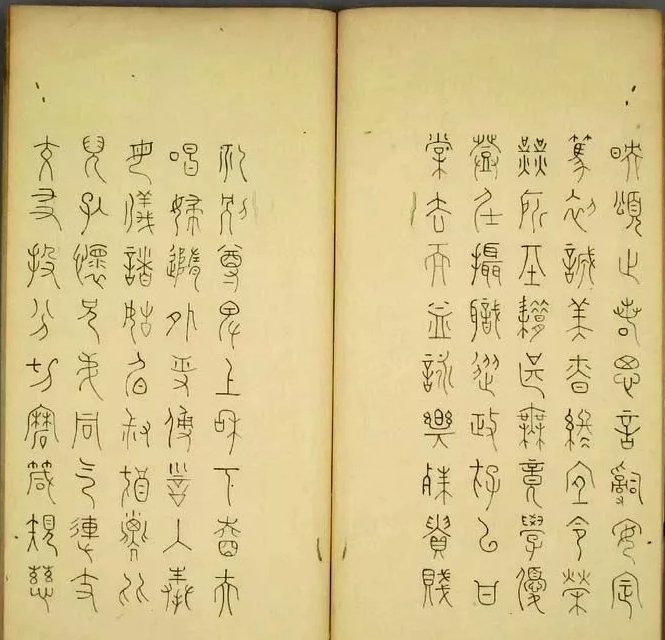 映頌止若思言辭安定
篤初誠美昚終宜令榮
業所基籍甚無竟學優
登仕攝職從政存以甘
棠去而益詠樂殊貴賤
礼別尊卑上和下睦夫
唱婦隨外受傅訓入奉
母儀諸姑伯叔猶子比
兒孔懷兄弟同气連支
交友投分切磨箴規慈